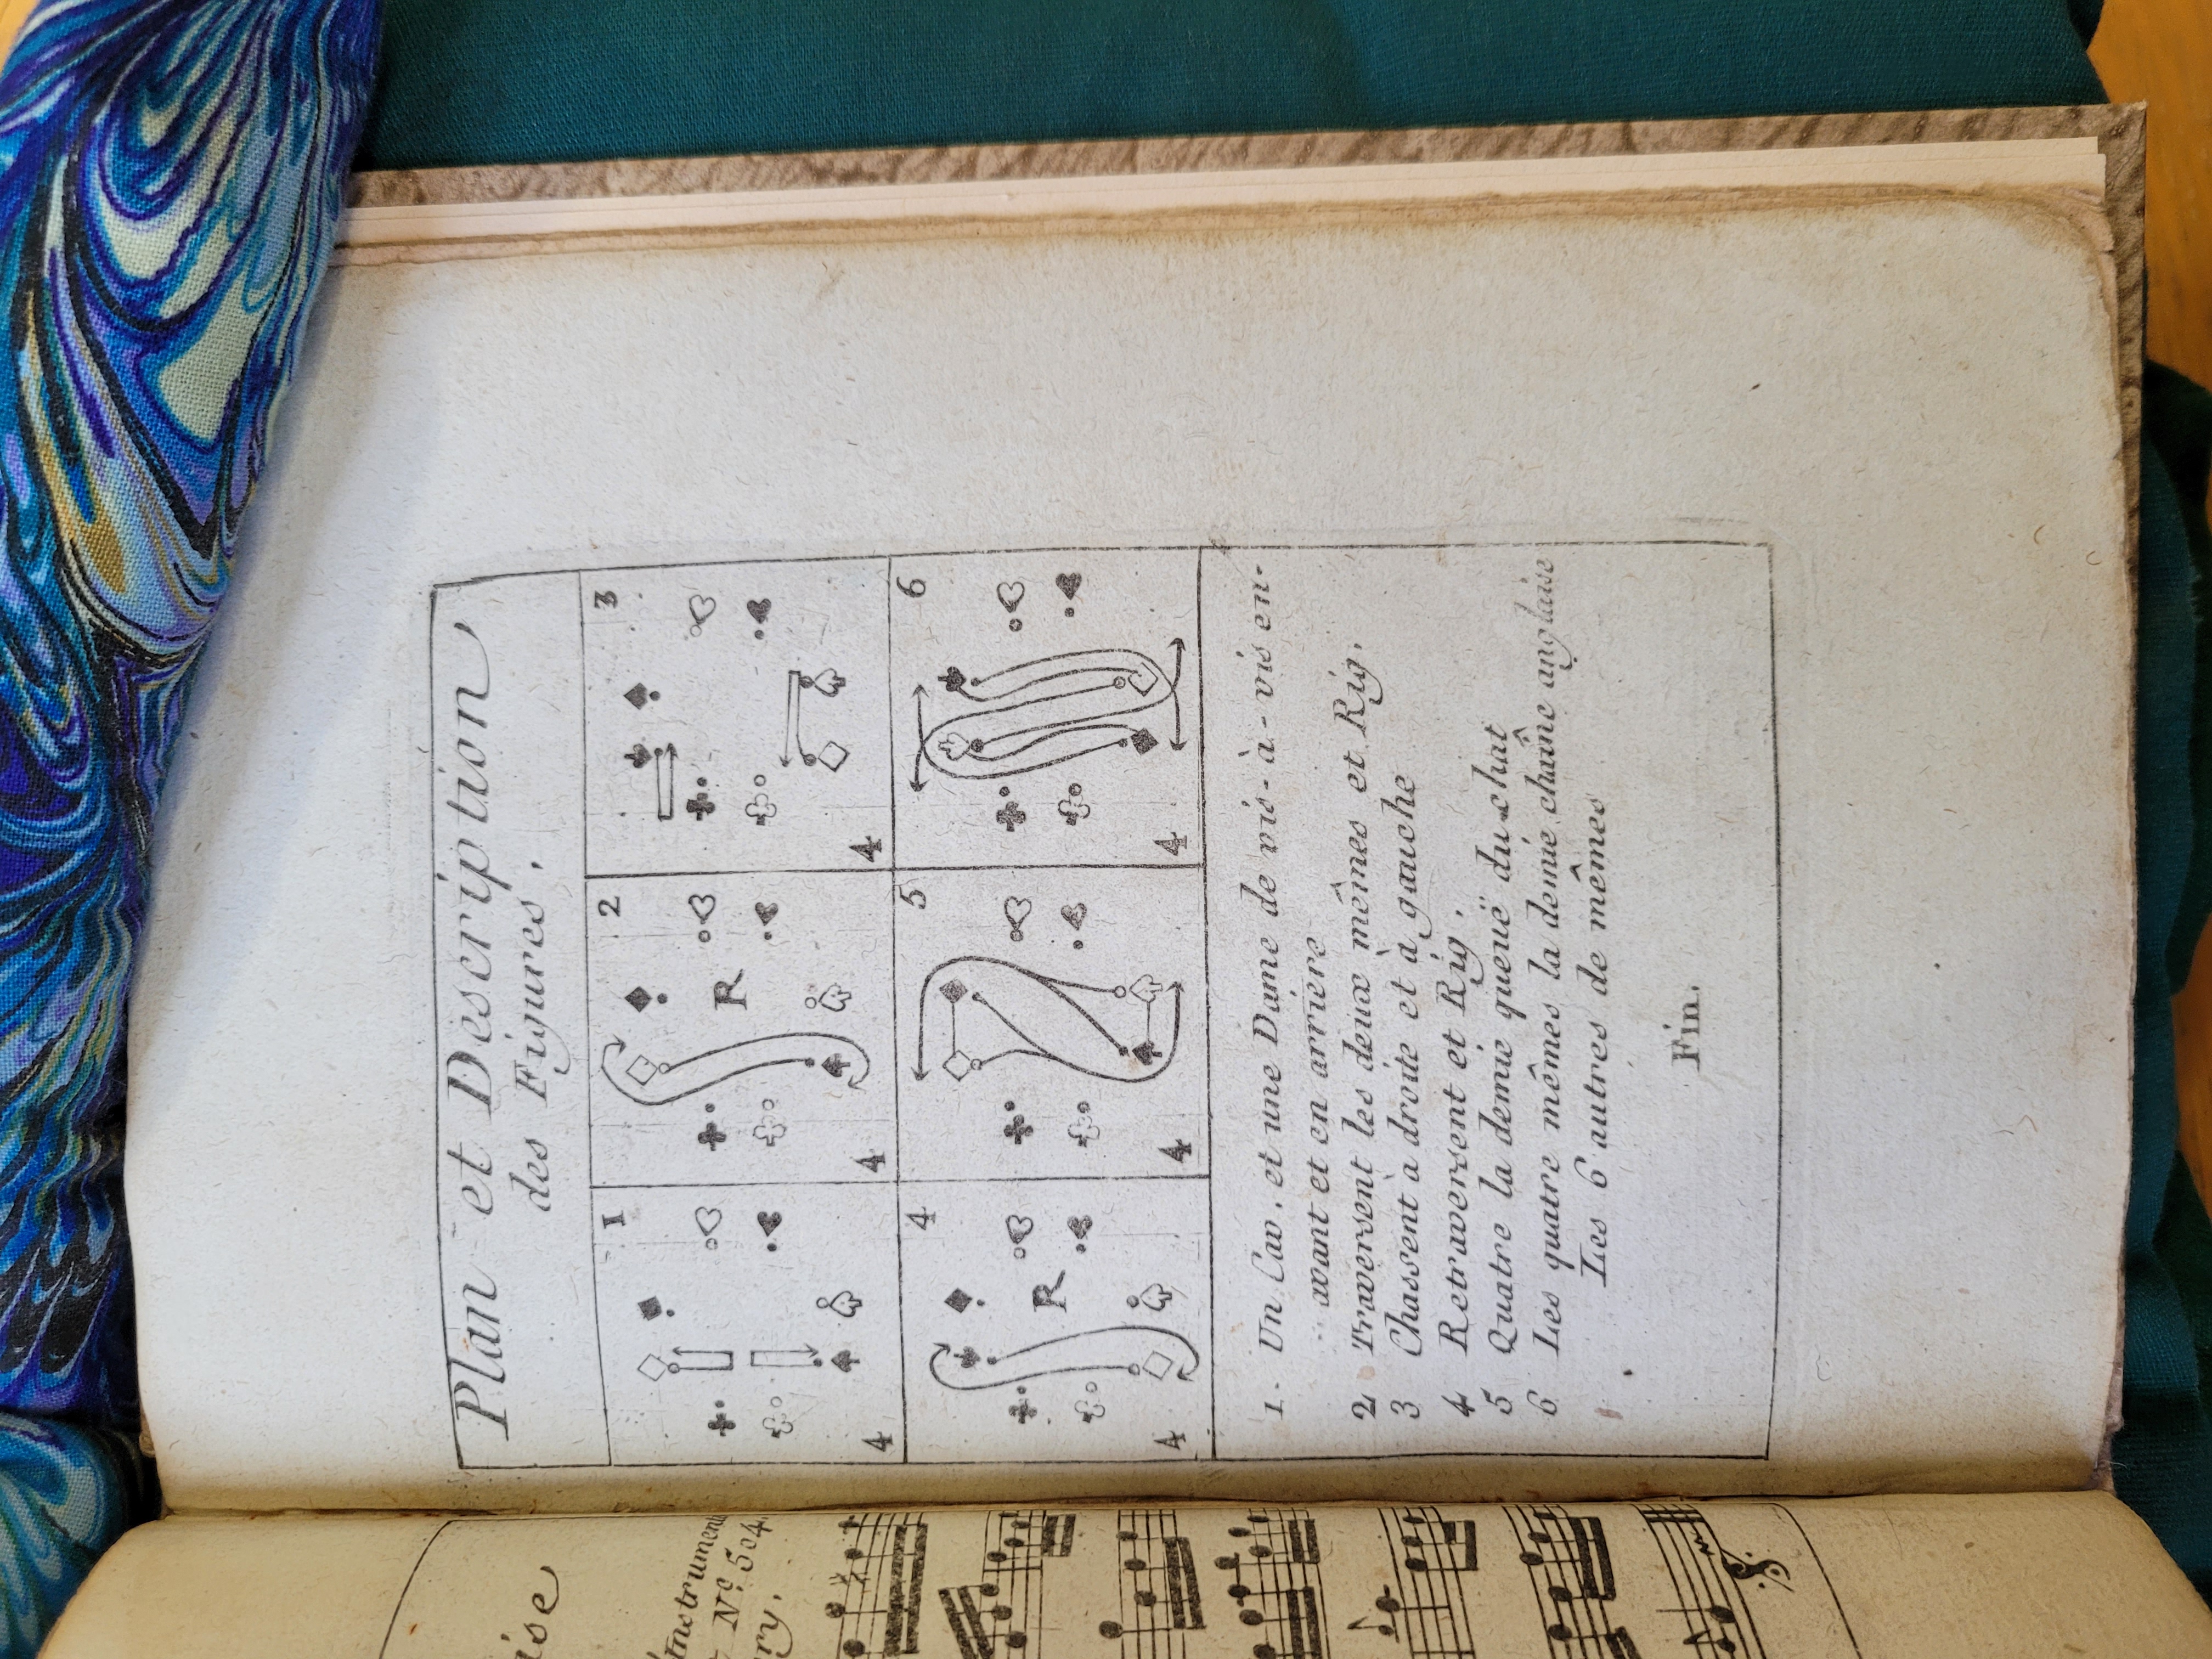 Plan et Description
des Figures.
1
4
2
R
4
3
4
4
R
4
5
4
6
4
1. Un Cav. et une Dame de vis-à-vis en-
avant et en arriere
2 Traversent les deux mêmes et Rig.
3 Chassent à droite et à gauche
4 Retraversent et Rig.
5 Quatre la demie queuë du chat
6 Les quatre mêmes la demie chaîne anglaise
Les 6 autres de mêmes
Fin.
Nº. 504.